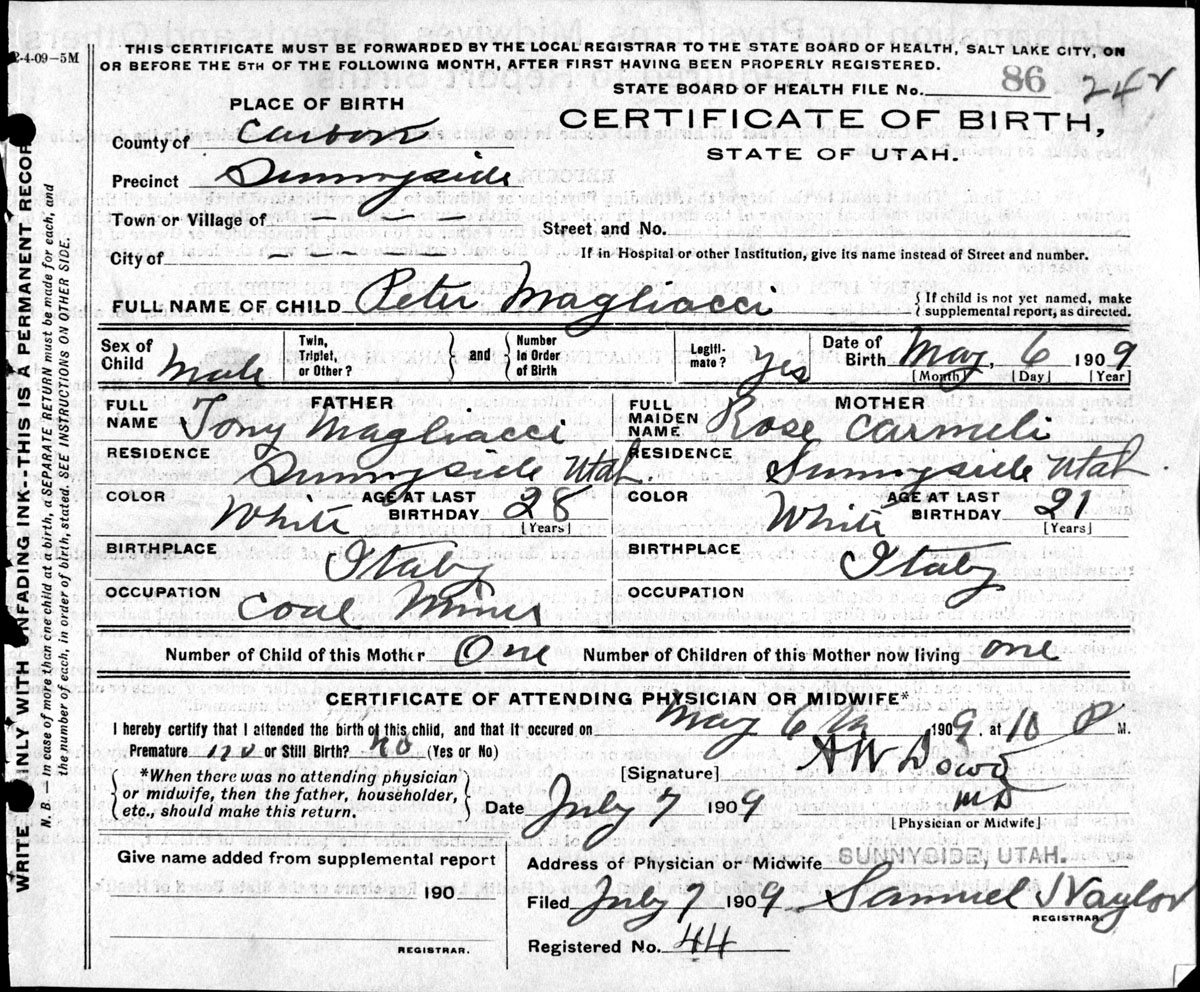 2-4-09-5M
THIS CERTIFICATE MUST BE FORWARDED BY THE LOCAL REGISTRAR TO THE STATE BOARD OF HEALTH, SALT LAKE CITY, ON
OR BEFORE THE 5TH OF THE FOLLOWING MONTH, AFTER FIRST HAVING BEEN PROPERLY REGISTERED.
STATE BOARD OF HEALTH FILE No. 86 242
PLACE OF BIRTH
CERTIFICATE OF BIRTH,
STATE OF UTAH.
County of Carbon
Precinct Sunnyside
Town or Village of - -
Street and No.
City of - - -
If in Hospital or other Institution, give its name instead of Street and number.
FULL NAME OF CHILD Peter Magliacci
{ If child is not yet named, make
supplemental report, as directed.
Sex of Child Male
Twin, Triplet, or Other? } and { Number in Order of Birth
Legiti-mate? Yes
Date of Birth May, 6 1909
[Month] [Day] [Year]
FATHER
FULL NAME Tony Magliacci
RESIDENCE Sunnyside Utah.
COLOR White AGE AT LAST BIRTHDAY 28
[Years]
BIRTHPLACE Italy
OCCUPATION Coal Miner
MOTHER
FULL MAIDEN NAME Rose Carmeli
RESIDENCE Sunnyside Utah.
COLOR White AGE AT LAST BIRTHDAY 21
[Years]
BIRTHPLACE Italy
OCCUPATION
Number of Child of this Mother One Number of Children of this Mother now living one
CERTIFICATE OF ATTENDING PHYSICIAN OR MIDWIFE*
I hereby certify that I attended the birth of this child, and that it occured on May 6th 1909, at 10 P M.
Premature no or Still Birth? no (Yes or No)
*When there was no attending physician
or midwife, then the father, householder,
etc., should make this return.
[Signature] A W Dowd
MD
Date July 7 1909
[Physician or Midwife]
Give name added from supplemental report
190
REGISTRAR.
Address of Physician or Midwife SUNNYSIDE, UTAH.
Filed July 7 1909 Samuel Naylor
REGISTRAR.
Registered No. 44
WRITE PLAINLY WITH UNFADING INK--THIS IS A PERMANENT RECORD
N. B. — In case of more than one child at a birth, a SEPARATE RETURN must be made for each, and
the number of each, in order of birth, stated. SEE INSTRUCTIONS ON OTHER SIDE.